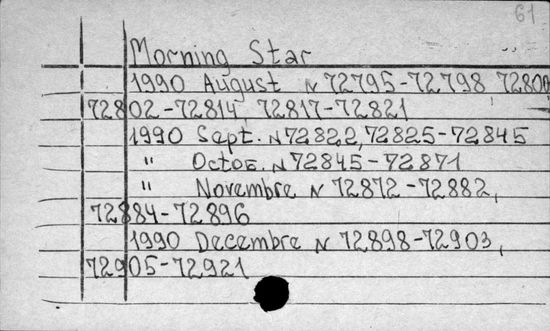 61
Morning Star
1990 August N 72795-72798 72800
72802-72814, 72817-72821
1990 Sept. N 72822, 72825-72845
" Octoб. N 72845-72871
" Novembre N 72872-72882,
72884-72896
1990 Decembre N 72898-72903,
72905-72921